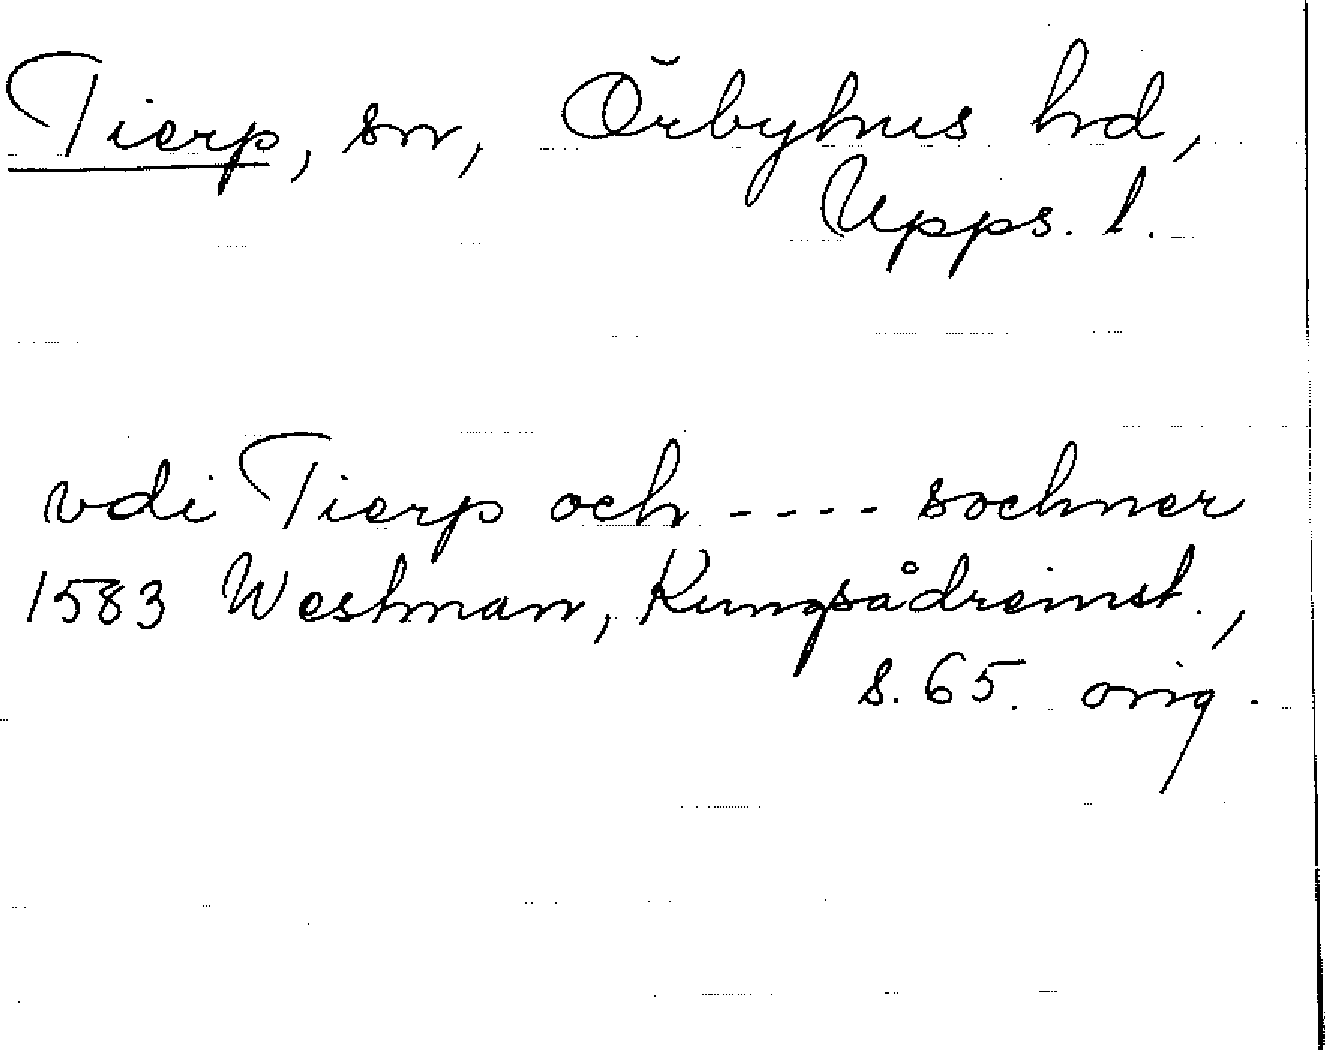 Tierp, sn, Örbyhus hd,
Upps. l.
vdi Tierp och ---- sochner
1583 Westman, Kungsådreinst.,
s. 65. orig.